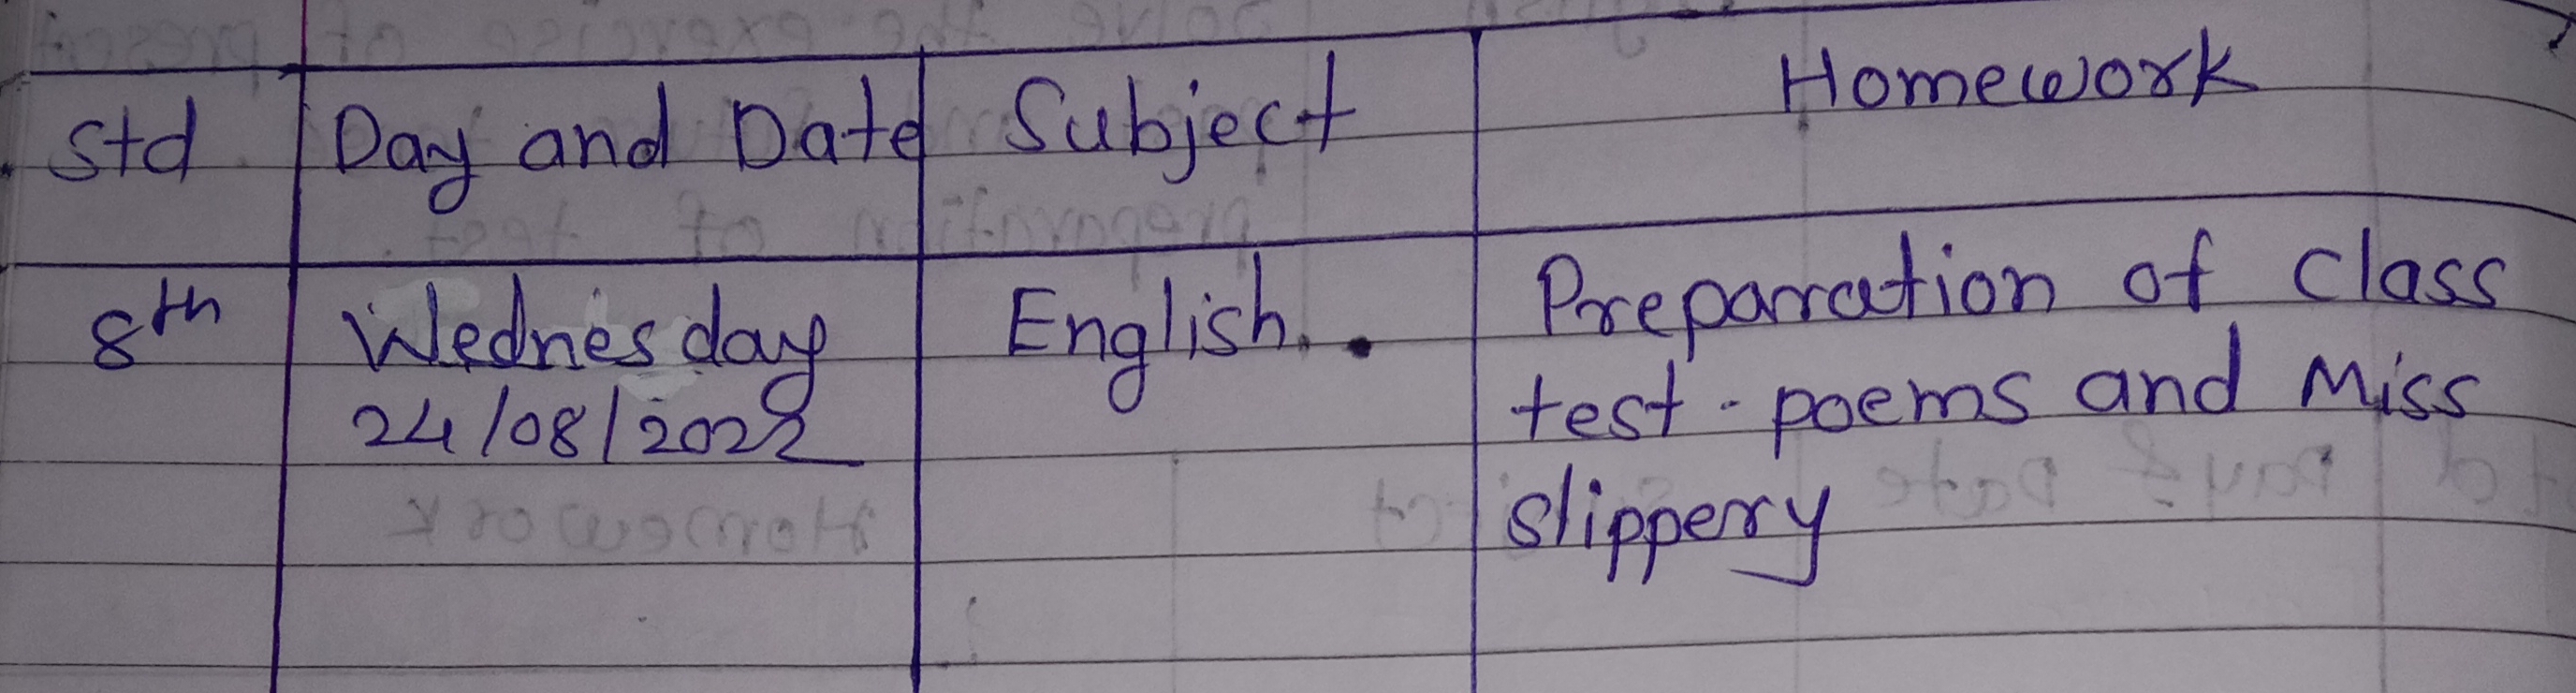 Std Day and Date Subject Homework
8th Wednesday English. Preparation of class
24/08/2022 test - poems and Miss
slippery